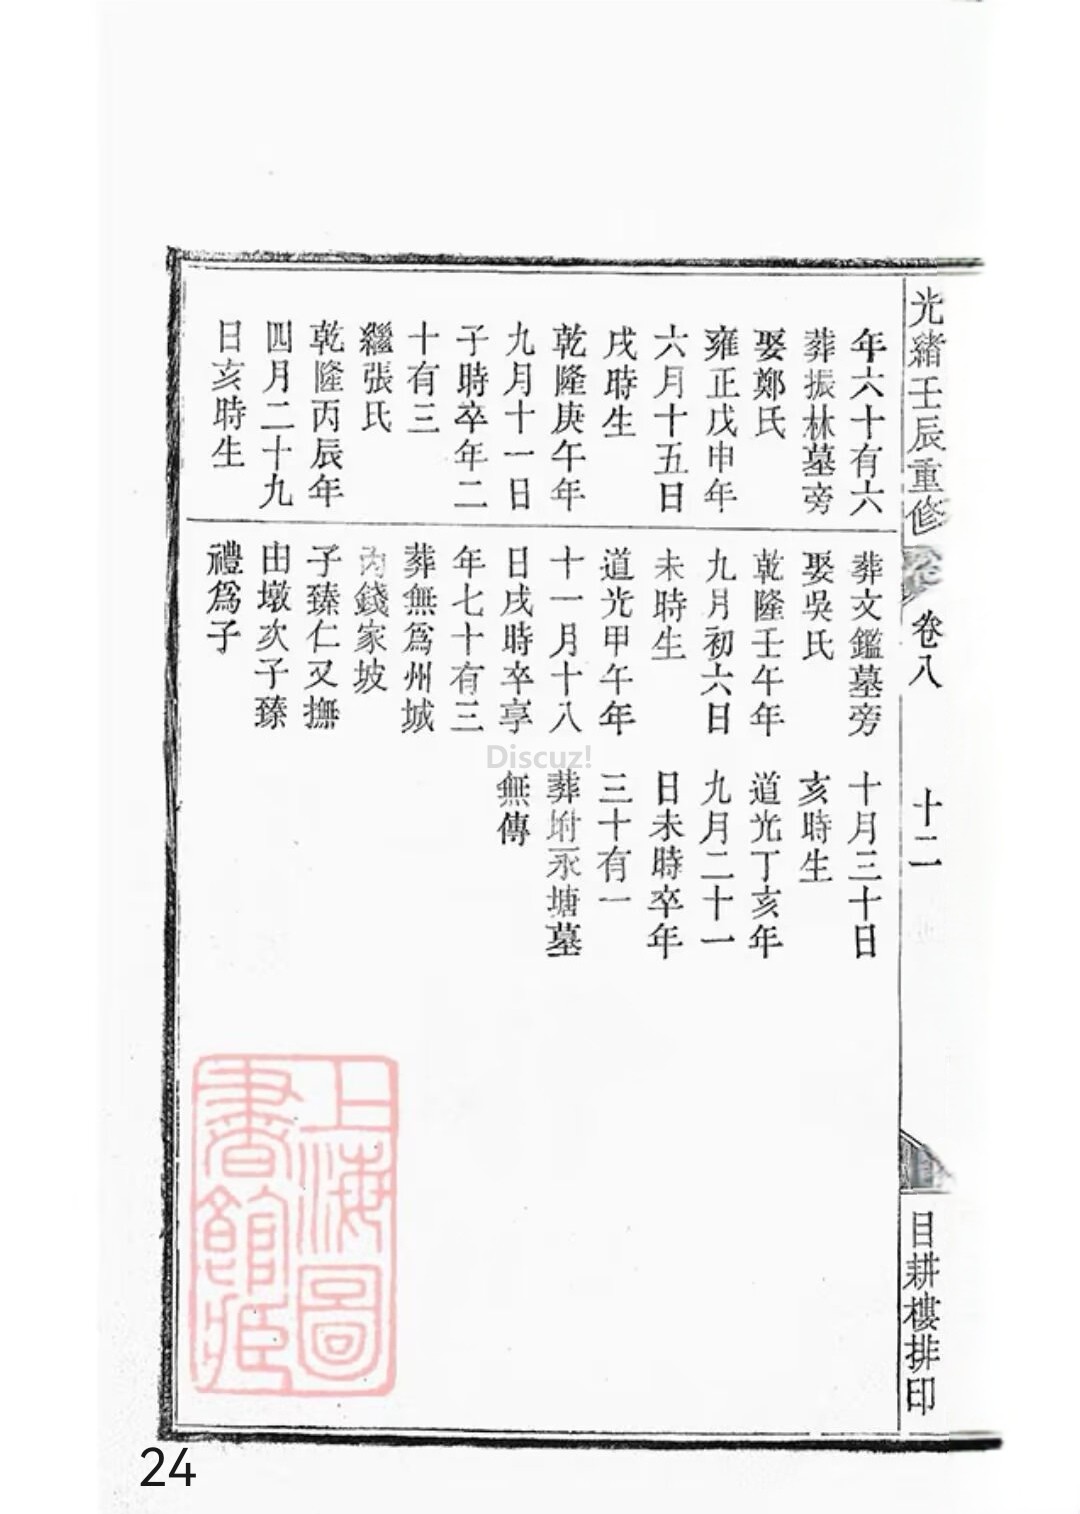 光緒壬辰重修
卷八
十二
目耕樓排印
年六十有六
葬振林墓旁
娶鄭氏
雍正戊申年
六月十五日
戌時生
乾隆庚午年
九月十一日
子時卒年二
十有三
繼張氏
乾隆丙辰年
四月二十九
日亥時生
葬文鑑墓旁
娶吳氏
乾隆壬午年
九月初六日
未時生
道光甲午年
十一月十八
日戌時卒享
年七十有三
葬無爲州城
內錢家坡
子臻仁又撫
由墩次子臻
禮爲子
十月三十日
亥時生
道光丁亥年
九月二十一
日未時卒年
三十有一
葬坿永塘墓
無傳
Discuz!
上海圖
書館藏
24